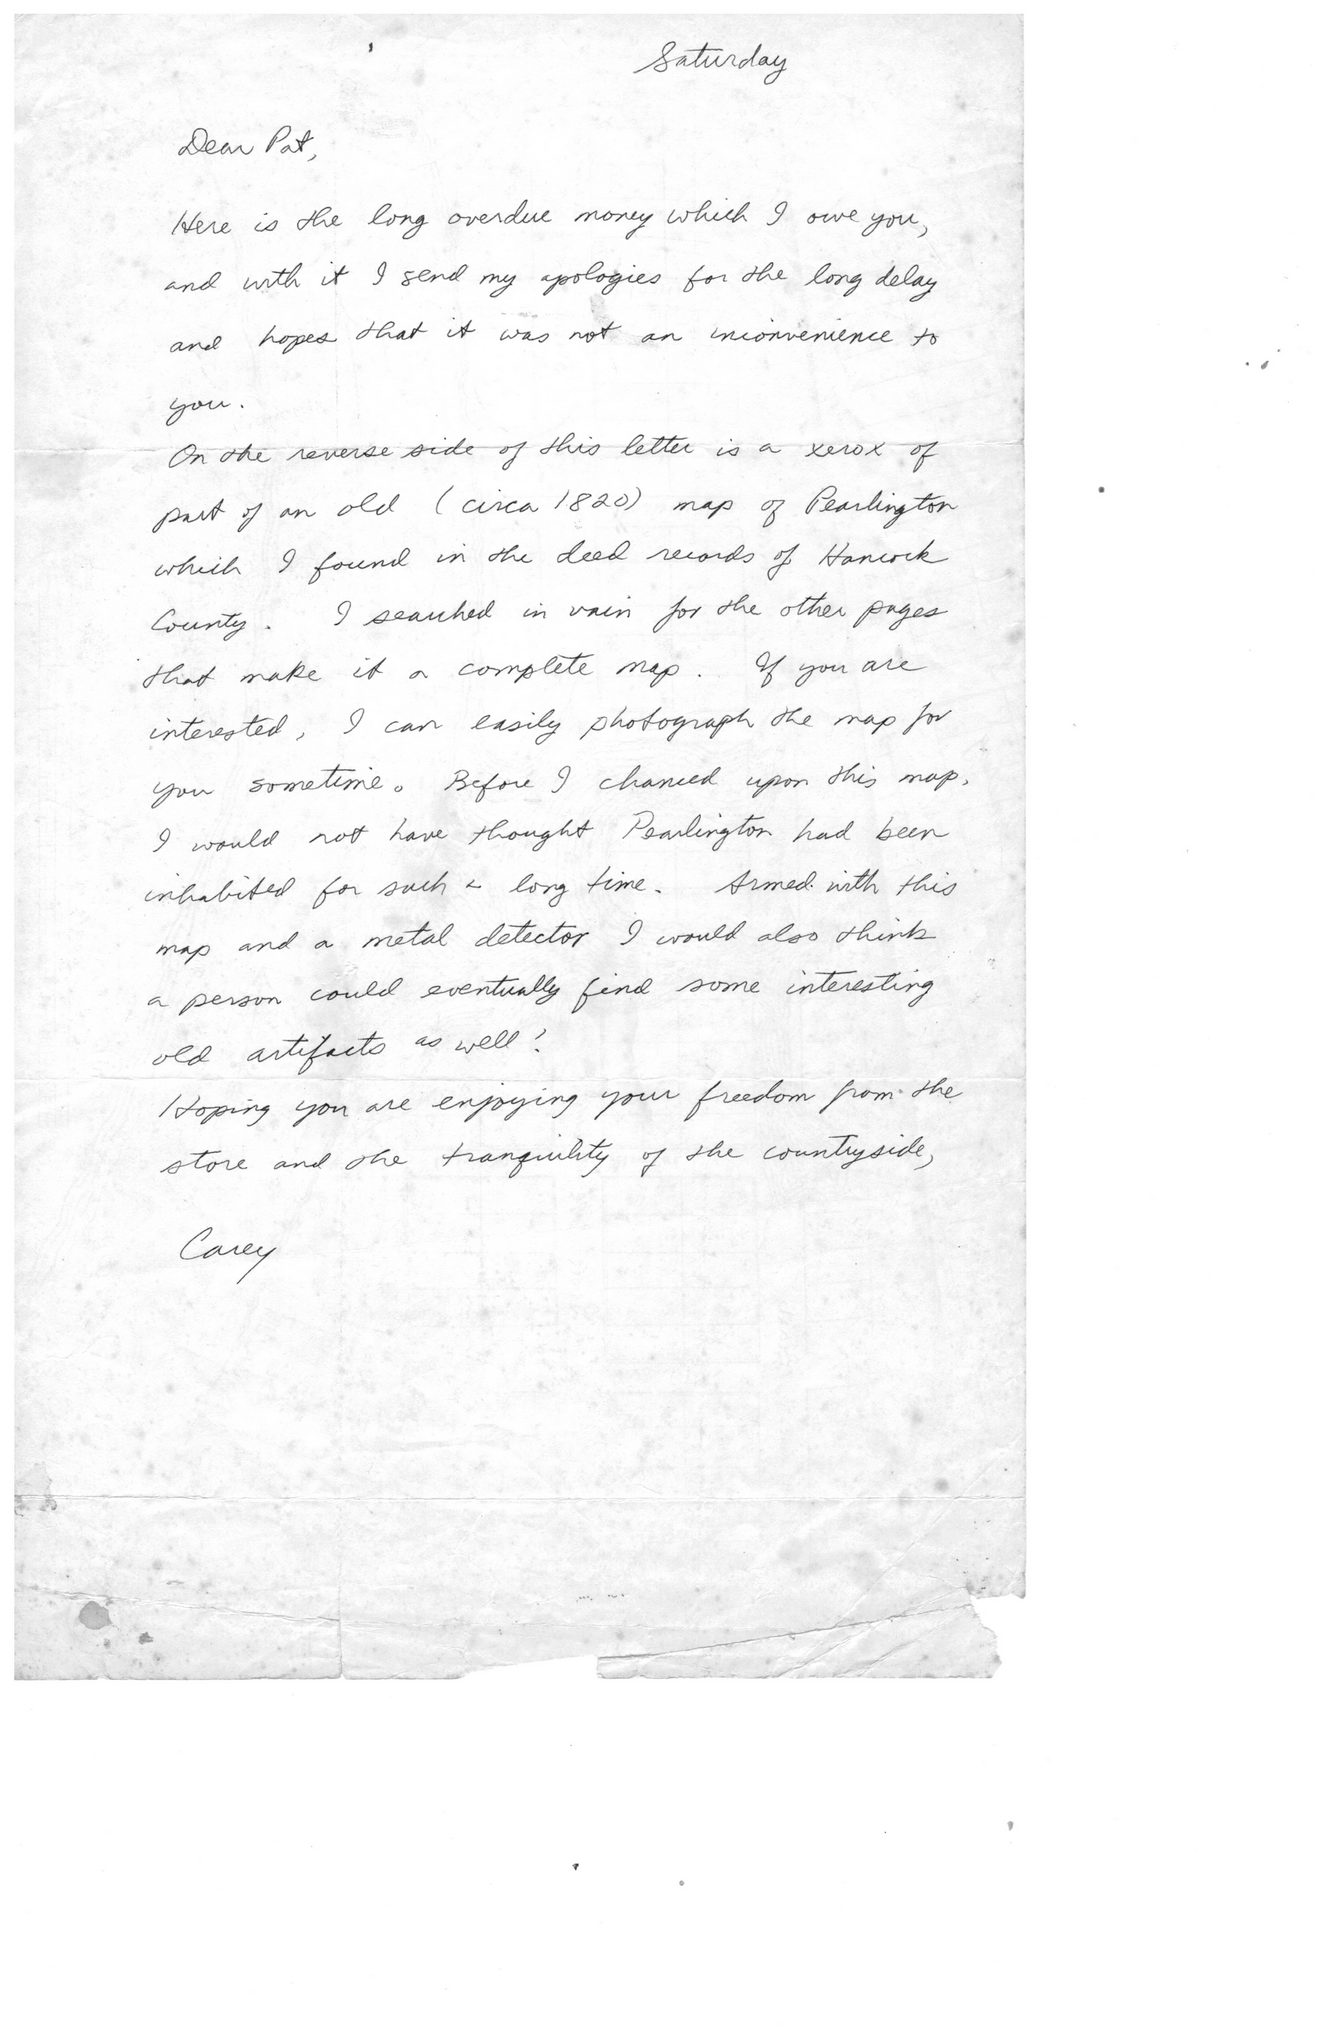 Saturday
Dear Pat,
Here is the long overdue money which I owe you,
and with it I send my apologies for the long delay
and hopes that it was not an inconvenience to
you.
On the reverse side of this letter is a xerox of
part of an old (circa 1820) map of Pearlington
which I found in the deed records of Hancock
County. I searched in vain for the other pages
that make it a complete map. If you are
interested, I can easily photograph the map for
you sometime. Before I chanced upon this map,
I would not have thought Pearlington had been
inhabited for such a long time. Armed with this
map and a metal detector I would also think
a person could eventually find some interesting
old artifacts as well!
Hoping you are enjoying your freedom from the
store and the tranquility of the countryside,
Carey